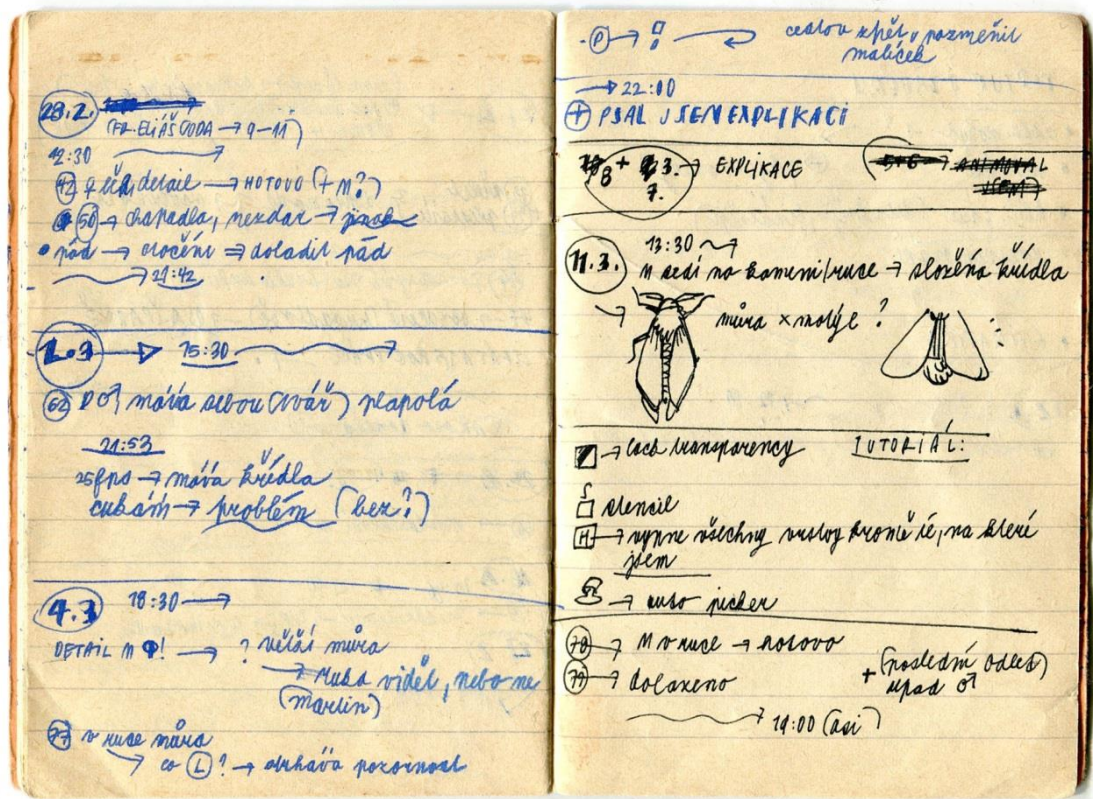 28.2.
(FR. ELIÁŠ ÓDA → 9–11)
12:30
42 detail → HOTOVO (+ M?)
50 → chapadla, nezdar →
• pád → otočení ⇒ doladit pád
→ 21:42
1.3 → 15:30
62 DO♂ mává sebou (tvář) plápolá
21:53
25 fps → mává křídla
cukám → problém (bez?)
4.3 18:30 →
DETAIL M ! → ? větší můra
→ ruka vidět, nebo ne
(Martin)
77 v ruce můra
co L ? → strhává pozornost
- P → cestou zpět, pozměnit
malíček
→ 22:00
+ PSAL JSEM EXPLIKACI
8 + 3. → EXPLIKACE
7.
11.3. 13:30
M sedí na kameni/ruce → složená křídla
můra × motýl ?
→ lock transparency TUTORIÁL:
stencil
H → vypne všechny vrstvy kromě té, na které
jsem
→ auto picker
78 → M v ruce → hotovo
79 → dolazeno + (poslední odlet)
úpad ♂
→ 19:00 (asi)